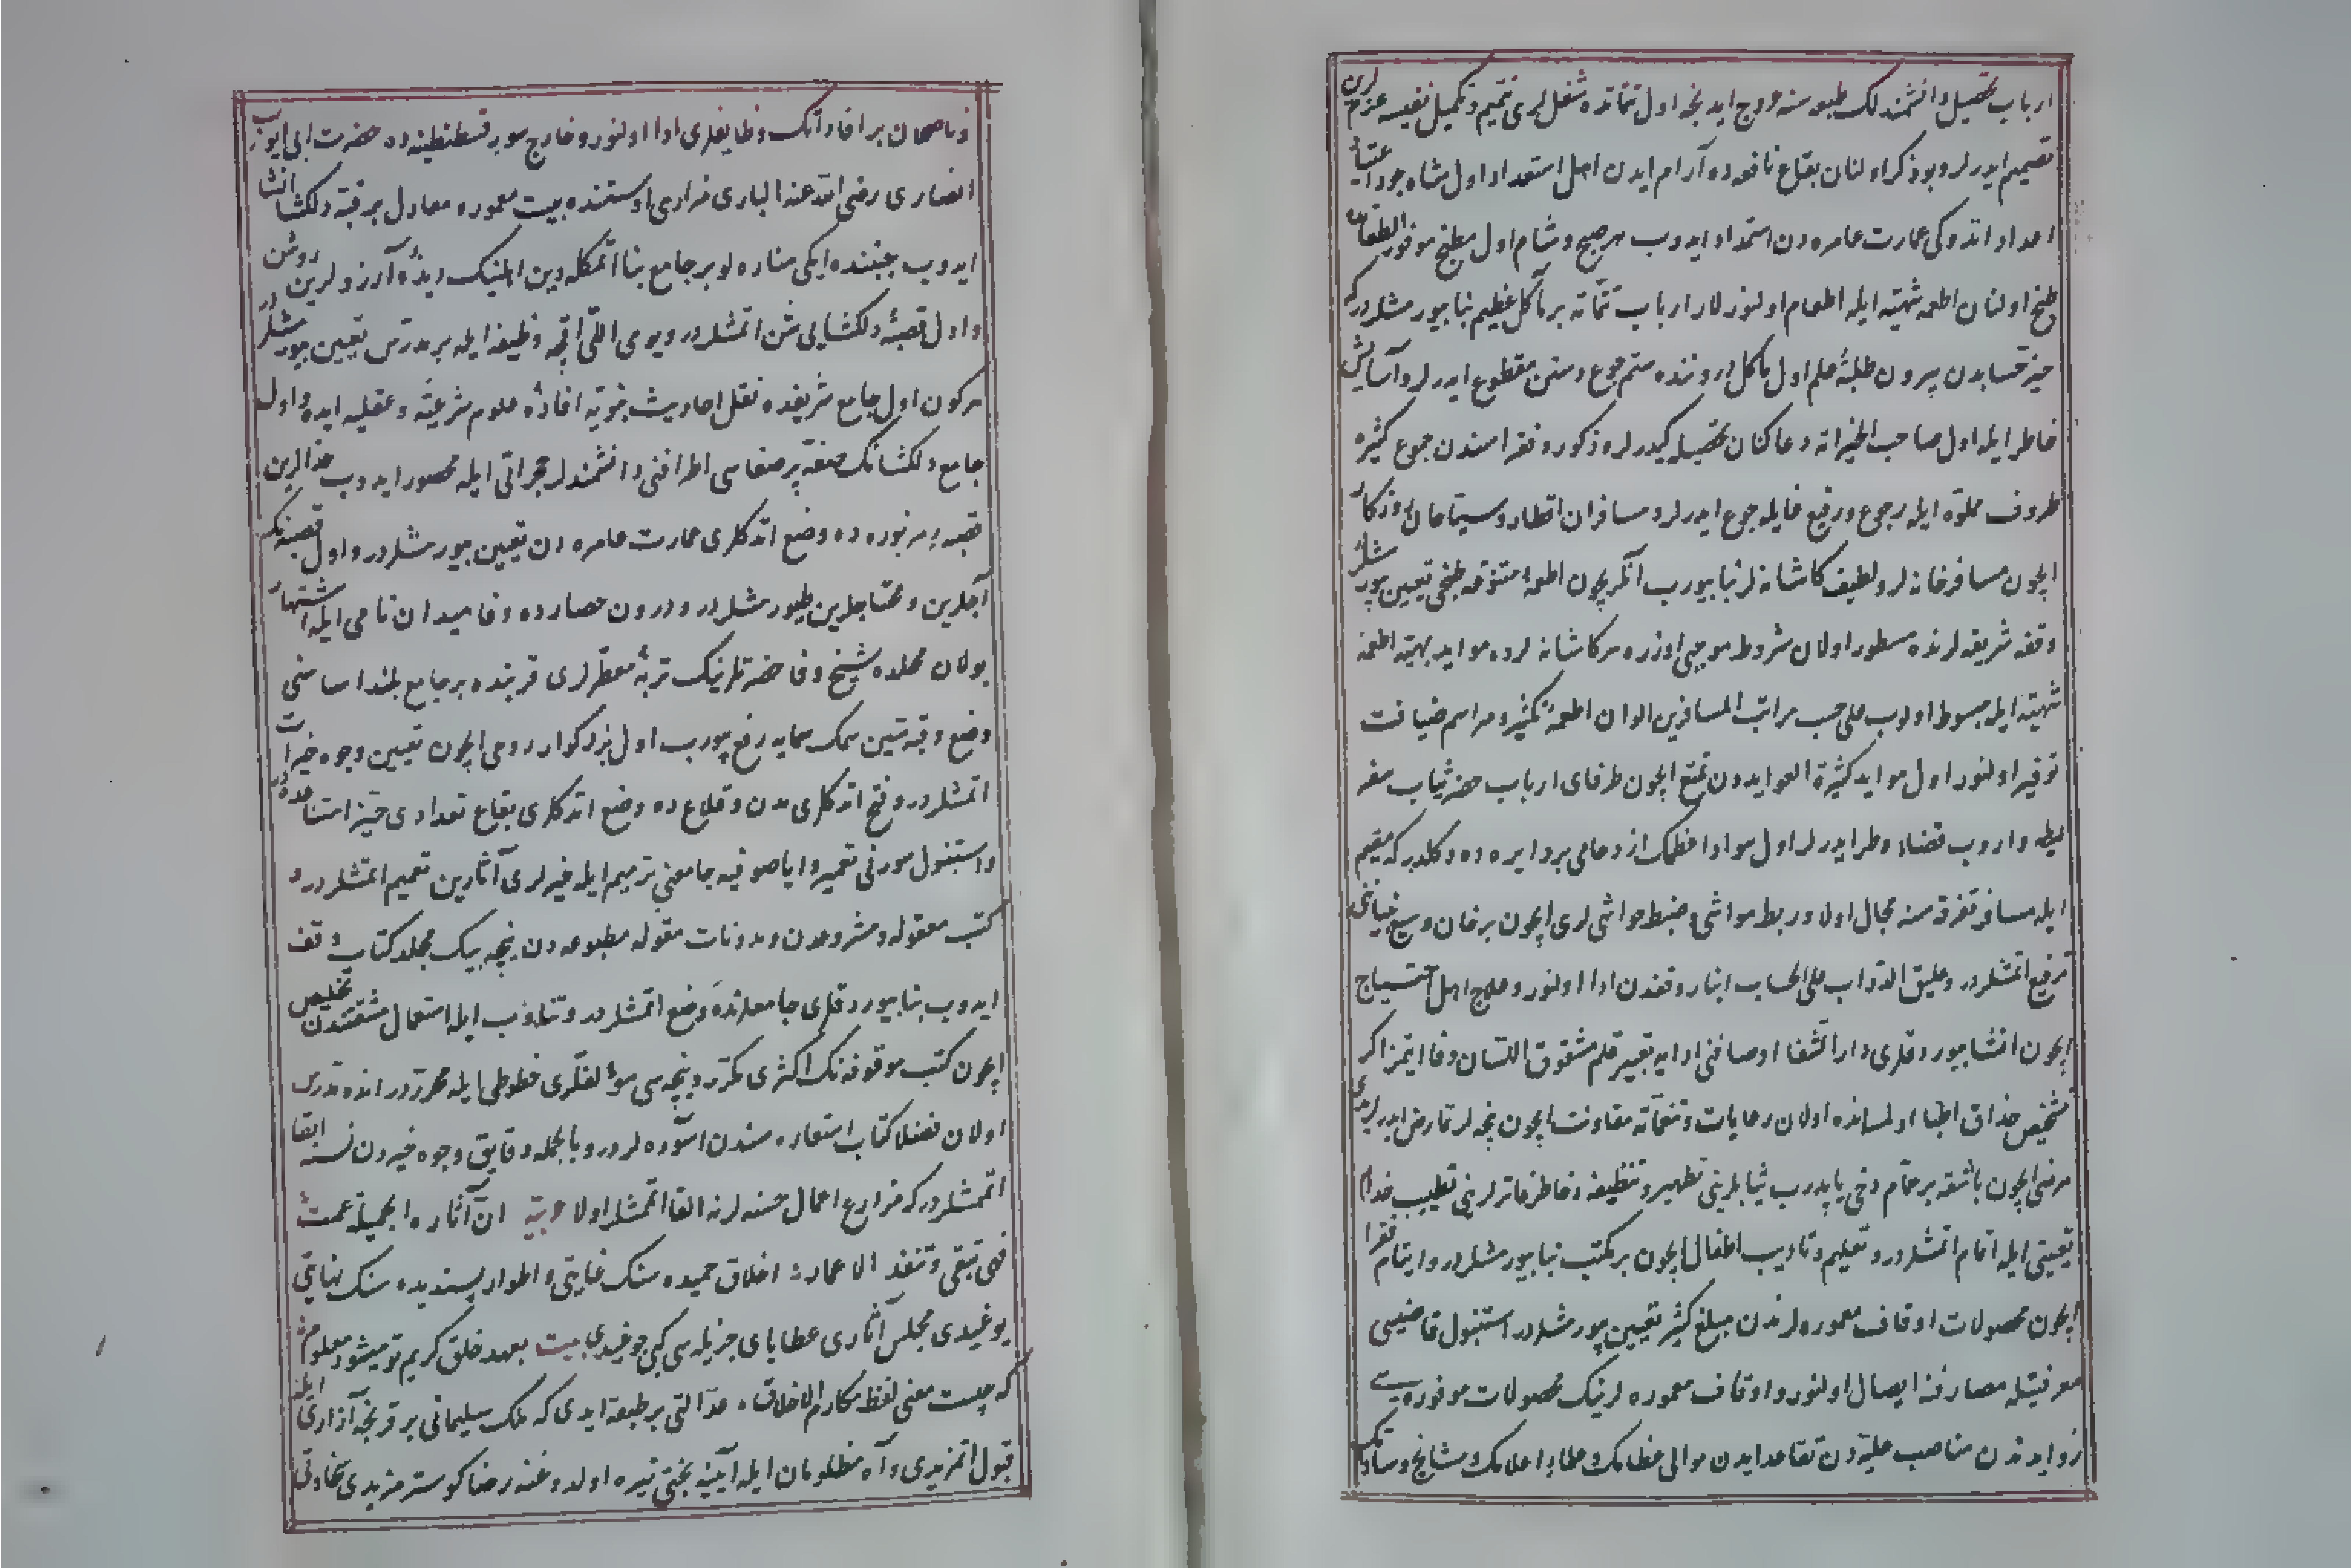 ارباب تحصیل دانشمندلک طبعرسنه عروج ایدنجه اول تتماتده شغللری تتمیم و تکمیل نفیسه عزم لرین
تصمیم ایدرلر و بو ذکر اولنان بقاع نافعه ده آرام ایدن اهل استعداد اول شاه جود اعتیاد
امداد اتدوکی عمارت عامره دن استمداد ایدوب هر صبح و شام اول مطبخ موفور الطعامده
طبخ اولنان اطعمه شهیه ایله اطعام اولنورلار ارباب تتماته بر مأکل عظیم بنا بیورمشلردر که
حیز حسابدن بیرون طلبهٔ علم اول مأکل دروننده ستم جوع و سنن مقطوع ایدرلر و آسایش
خاطر ایله اول صاحب الخیراته دعاکنان تحصیله کیدرلر و ذکور و فقراسندن جموع کثیره
ظروف مملوه ایله رجوع و رفیع غایله جوع ایدرلر و مسافران اقطار و سیاحان روزکار
ایچون مسافرخانه لر و لطیف کاشانه لر بنا بیورب آنلرچون اطعمهٔ متنوعه طبخی تعیین بیورمشلر
وقفه شریفه لرنده مسطور اولان شروط موجبی اوزره هر کاشانه لرده مواید بهیه اطعمهٔ
شهیه ایله مبسوط اولوب علی حسب مراتب المسافرین الوان اطعمهٔ تکثیر و مراسم ضیافت
توفیر اولنور اول مواید کثیرة العوایددن تمتع ایچون ظرفای ارباب حضر ثیاب سفر
ایله واروب قضاء وطر ایدرلر اول سواد اعظمک ازدحامی بر دایره ده دکلدر که مقیم
ایله مسافر تفرقه سنه مجال اولا و ربط مواشی و ضبط حواشی لری ایچون بر خان وسیع بنیانی
ترفیع اتمشلردر و علیق الدواب علی الحساب انبار وقفدن ادا اولنور و علاج اهل احتیاج
ایچون انشا بیوردقلری دار الشفا اوصافنی ادایه تعبیر قلم مشقوق اللسان وفا ایتمز اکر
تشخیص حذاق اطبا اولمسانده اولان رعایات و تنعماته مقاونت ایچون نجه لر تمارض ایدرلردی
مرضی ایچون باشقه بر حمام دخی یاپدرب ثیابلرینی تطهیر و تنظیفه و خاطرماترلرینی تطییب خدام
تعیینی ایله اتمام اتمشلردر و تعلیم و تأدیب اطفال ایچون بر مکتب بنا بیورمشلردر و ایتام فقرا
ایچون محصولات اوقاف معموره لرندن مبلغ کثیر تعیین بیورمشلردر استنبول قاضیسی
معرفتیله مصارفنه ایصال اولنور و اوقاف معموره لرینک محصولات موفوره سی
زوایدندن مناصب علیه دن تقاعد ایدن موالی عظامک و علماء اعلامک و مشایخ و ساداتک
و ناصحان بر افادانک وظایفلری ادا اولنور و خارج سور قسطنطینیه ده حضرت ابی ایوب
انصاری رضی الله عنه الباری مزاری اوستنده بیت معموره معادل بر قبه دلکشا انشا
ایدوب جنبنده ایکی مناره لو بر جامع بنا اتمکله دین اهلینک دیدهٔ آرزولرین روشن
و اول قصبهٔ دلکشایی شن اتمشلردر و یومی اللی اقچه وظیفه ایله بر مدرس تعیین بیورمشلردر
هر کون اول جامع شریفده نقل احادیث نبویه افادهٔ علوم شرعیه و عقلیه ایده و اول
جامع دلکشانک صفهٔ پر صفاسی اطرافنی دانشمندلر حجراتی ایله محصور ایدوب غدالرین
قصبهٔ مزبوره ده وضع اتدکلری عمارت عامره دن تعیین بیورمشلردر و اول قصبه نک
آجلرین و محتاجلرین طیورمشلردر و درون حصارده وفا میدان نامی ایله اشتهار
بولان محلده شیخ وفا حضرتلرینک تربهٔ معطرلری قربنده بر جامع بلند اساسنی
وضع و قبه سین سمک سمایه رفع بیورب اول بزرکوار روحی ایچون تعیین وجوه خیرات
اتمشلردر و فتح اتدکلری مدن و قلاع ده وضع اتدکلری بقاع تعدادی حیز استناعده در
و استنبول سورنی تعمیر و ایاصوفیه جامعنی ترمیم ایله خیرلری آثارین تعمیم اتمشلردر و
کتب معقوله و مشروعدن و مدونات مقوله مطبوعه دن نیجه بیک مجلد کتاب وقف
ایدوب بنا بیوردقلری جامعلرنده وضع اتمشلردر و تناوب ایله استعمال مشقتندن تخلیص
ایچون کتب موقوفه نک اکثری مکرر و نیجه سی مؤلفلری خطوطی ایله محرردر انده مدرس
اولان فضلا کتاب استعاره سندن آسوده لردر و بالجمله دقایق وجوه خیردن نسنه ابقا
اتممشلردر که مزارع اعمال حسنه لرنه القا اتمشلر اولا عربیة ان آثاره الجمیلة عمت
فهی تبقی و تنفذ الاعمار اخلاق حمیده سنک غایتی و اطوار پسندیده سنک نهایتی
یوغیدی مجلس آثاری عطایای جزیله سی کبی جوغیدی بیت بعهد خلق کریم تو میشود معلوم
که چیست معنی لفظ مکارم الاخلاق عدالتی بر طبعه ایدی که ملک سلیمانی بر قرنجه آزاری ایله
قبول اتمزیدی و آه مظلومان ایله آیینهٔ بختی تیره اولدوغنه رضا کوسترمزیدی سخاوتی